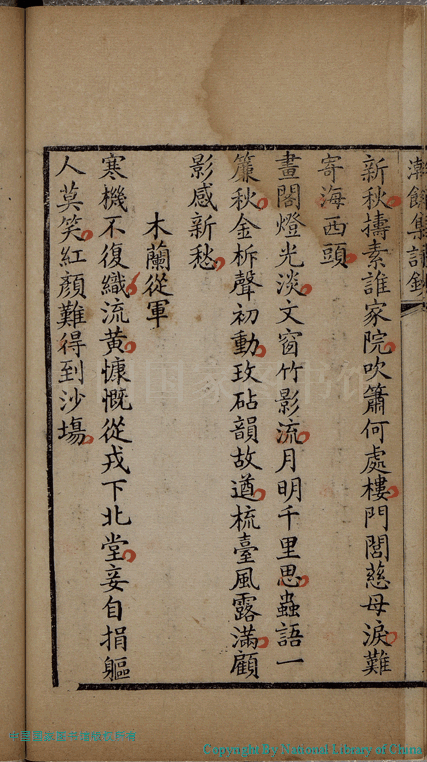 新秋擣素誰家院吹簫何處樓門閭慈母淚難
寄海西頭
畫閣燈光淡文窗竹影流月明千里思蟲語一
簾秋金柝聲初動玫砧韻故遒梳臺風露滿顧
影感新愁
木蘭從軍
寒機不復織流黃慷慨從戎下北堂妾自捐軀
人莫笑紅顏難得到沙場
中国国家图书馆
中国国家图书馆版权所有
Copyright By National Library of China